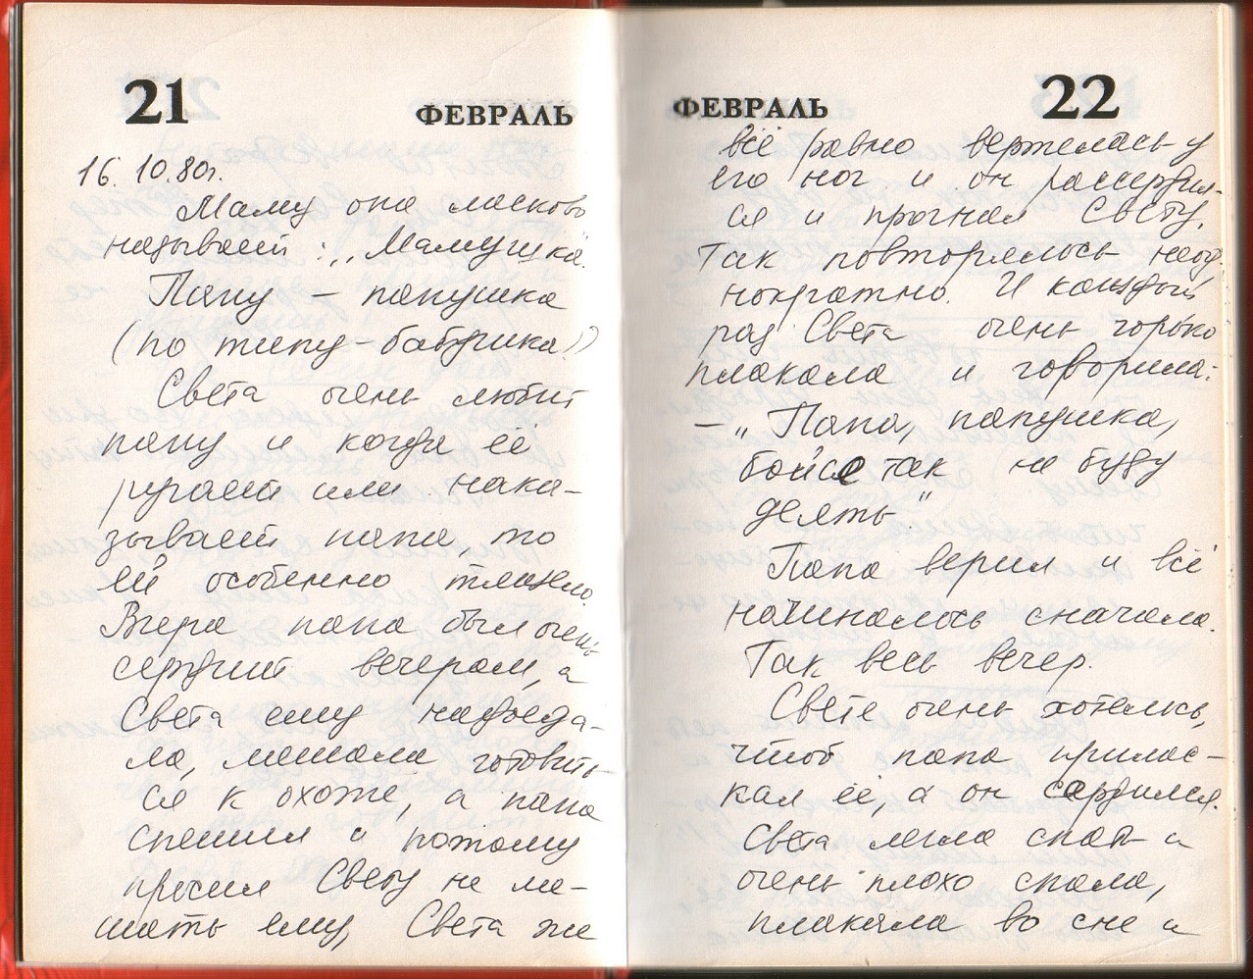 21
ФЕВРАЛЬ
16.10.80г.
Маму она ласково
называет: „Мамушка.
Папу – папушка
(по типу – бабушка!)
Света очень любит
папу и когда её
ругает или нака-
зывает папа, то
ей особенно тяжело.
Вчера папа был очень
сердит вечером, а
Света ему надоеда-
ла, мешала готовить-
ся к охоте, а папа
спешил и потому
просил Свету не ме-
шать ему, Света же
ФЕВРАЛЬ
22
всё равно вертелась у
его ног и он рассердил-
ся и прогнал Свету.
Так повторялось неод-
нократно. И каждый
раз Света очень горько
плакала и говорила:
– „Папа, папушка,
бойсе так не буду
делять"
Папа верил и всё
начиналось сначала.
Так весь вечер.
Свете очень хотелось,
чтоб папа прилас-
кал её, а он сердился.
Света легла спать и
очень плохо спала,
плакала во сне и